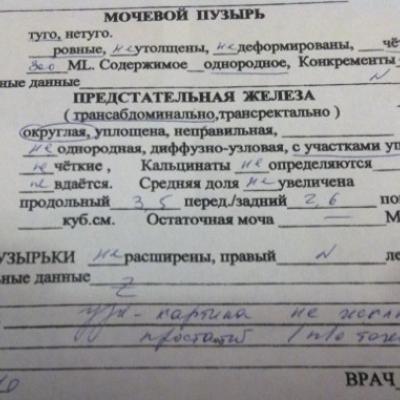 МОЧЕВОЙ ПУЗЫРЬ
туго, нетуго.
ровные, не утолщены, не деформированы,
ML. Содержимое однородное, Конкременты
ные данные N
ПРЕДСТАТЕЛЬНАЯ ЖЕЛЕЗА
( трансабдоминально,трансректально )
округлая, уплощена, неправильная,
не однородная, диффузно-узловая, с участками уп
не чёткие , Кальцинаты не определяются
не вдаётся. Средняя доля не увеличена
продольный 3,5 перед./задний 2,6 по
куб.см. Остаточная моча — М
УЗЫРЬКИ не расширены, правый N ле
ьные данные
картина не искл
простатит
ВРАЧ